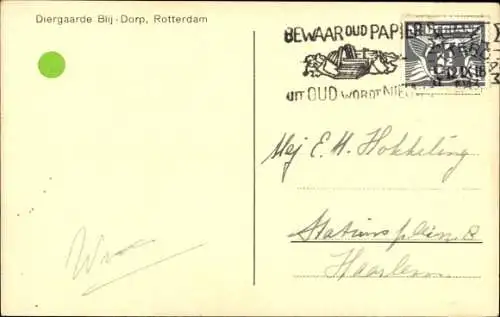 Diergaarde Blij-Dorp, Rotterdam
BEWAAR OUD PAPIER
UIT OUD WORDT NIEUW
Mej E. H. Hokkeling
Stationsplein 8
Haarlem